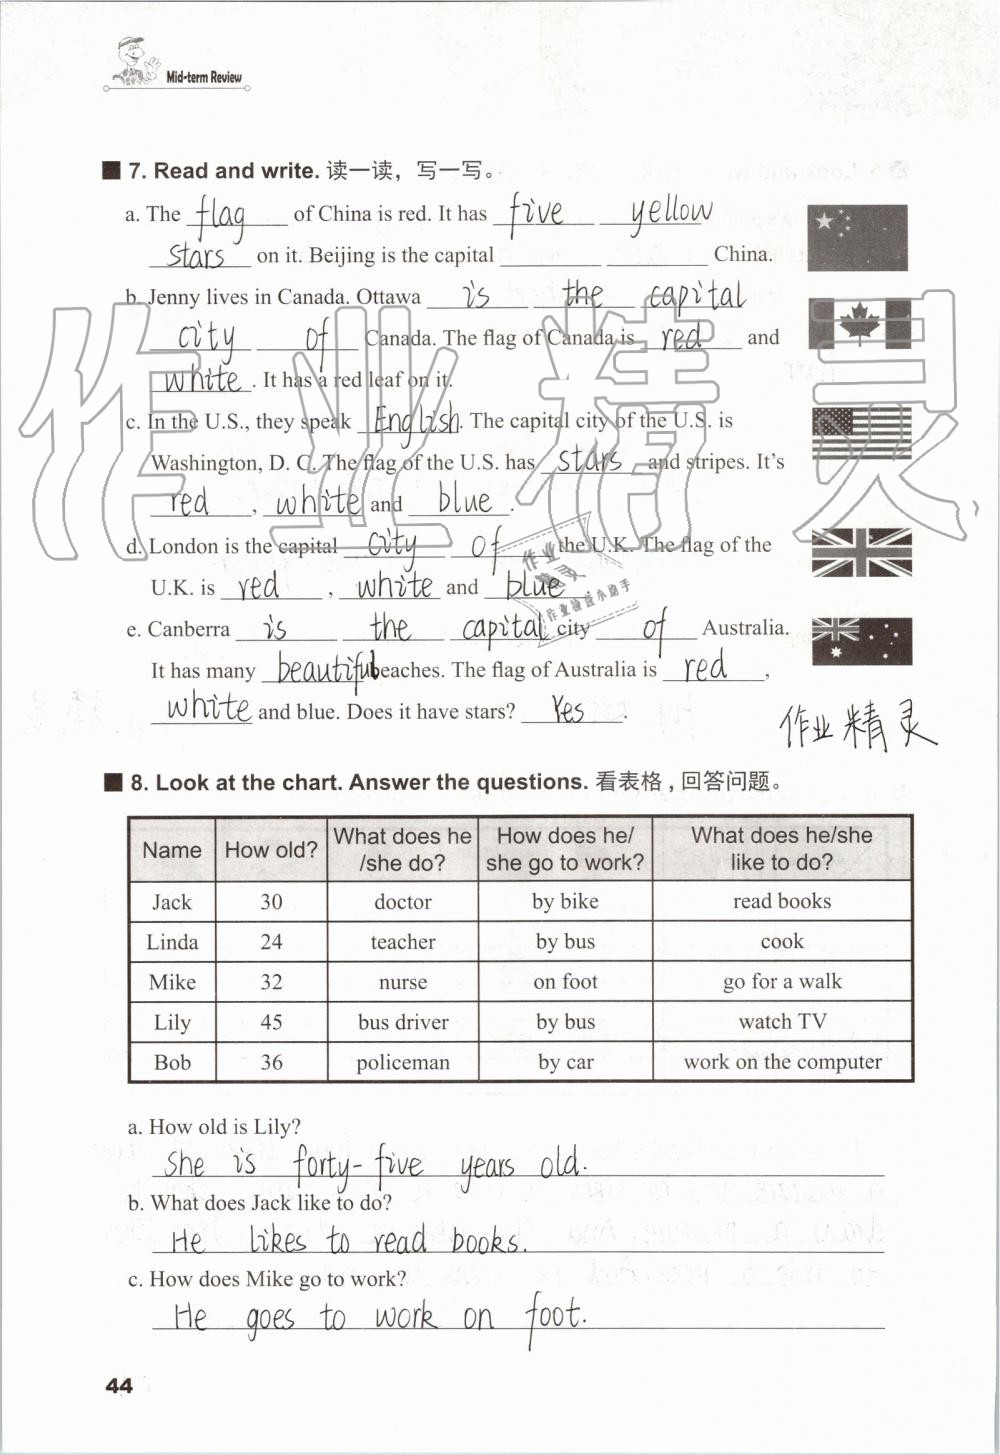 Mid-term Review
7. Read and write. 读一读，写一写。
a. The flag of China is red. It has five yellow
stars on it. Beijing is the capital ______ ______ China.
b. Jenny lives in Canada. Ottawa is the capital
city of Canada. The flag of Canada is red and
white. It has a red leaf on it.
c. In the U.S., they speak English. The capital city of the U.S. is
Washington, D. C. The flag of the U.S. has stars and stripes. It's
red, white and blue.
d. London is the capital city of the U.K. The flag of the
U.K. is red, white and blue.
e. Canberra is the capital city of Australia.
It has many beautiful beaches. The flag of Australia is red,
white and blue. Does it have stars? Yes.
作业精灵
8. Look at the chart. Answer the questions. 看表格，回答问题。
Name How old? What does he /she do? How does he/ she go to work? What does he/she like to do?
Jack 30 doctor by bike read books
Linda 24 teacher by bus cook
Mike 32 nurse on foot go for a walk
Lily 45 bus driver by bus watch TV
Bob 36 policeman by car work on the computer
a. How old is Lily?
She is forty-five years old.
b. What does Jack like to do?
He likes to read books.
c. How does Mike go to work?
He goes to work on foot.
44
作业精灵
作业
精灵
作业检查小助手